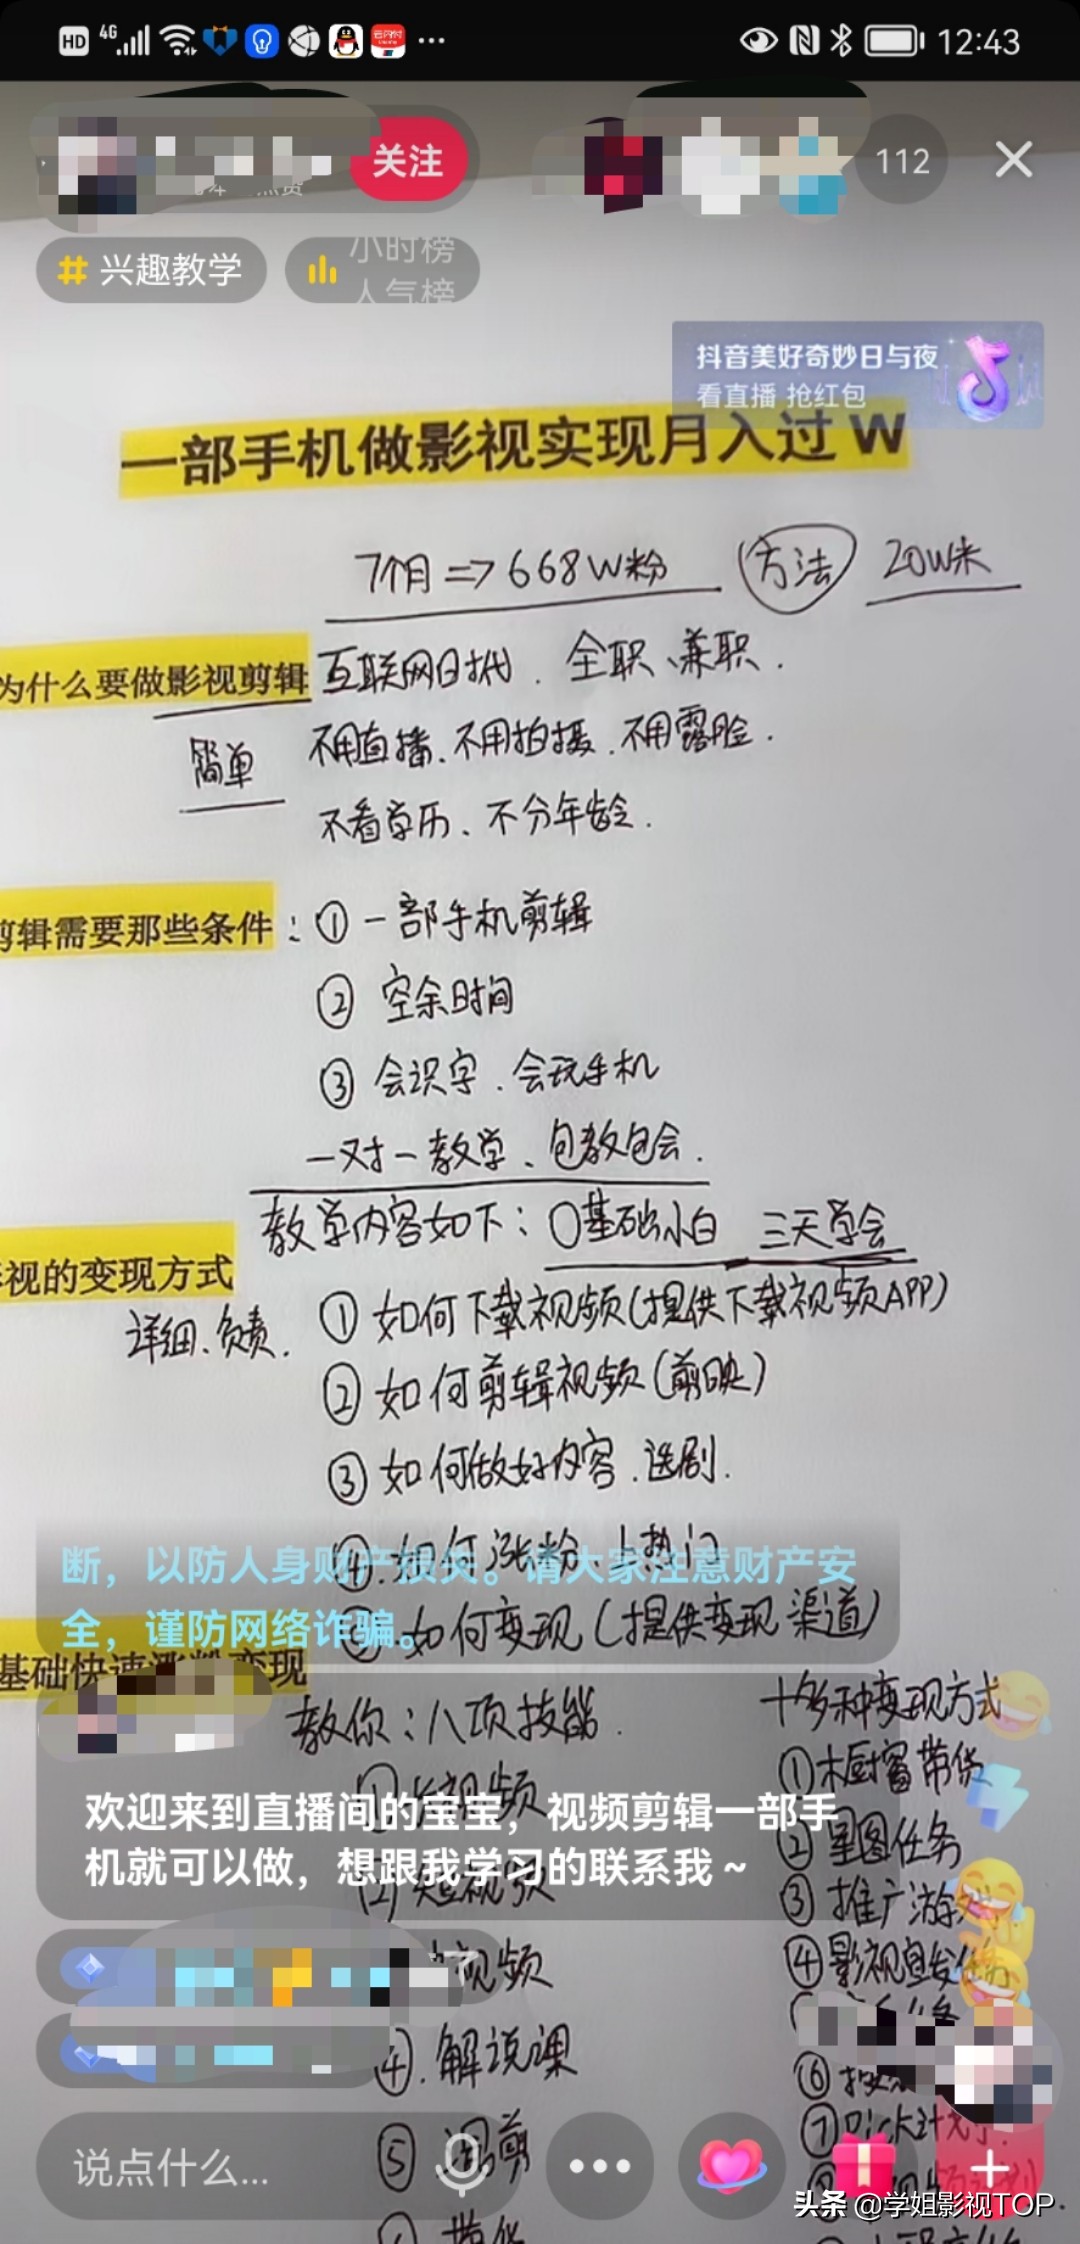 HD 4G 12:43
关注
112
兴趣教学
小时榜
人气榜
抖音美好奇妙日与夜
看直播 抢红包
一部手机做影视实现月入过W
7个月=>668W粉 方法 20W米
为什么要做影视剪辑 互联网时代. 全职、兼职.
简单 不用直播、不用拍摄、不用露脸.
不看学历、不分年龄.
剪辑需要那些条件:①一部手机剪辑
② 空余时间
③ 会识字.会玩手机
一对一教学、包教包会.
教学内容如下:0基础小白 三天学会
视的变现方式
详细、负责.
①如何下载视频(提供下载视频APP)
②如何剪辑视频(剪映)
③如何做好内容.选剧.
④.如何涨粉、上热门
断，以防人身财产损失。请大家注意财产安
全，谨防网络诈骗。
如何变现(提供变现渠道)
基础快速涨粉变现
教你:八项技能.
十多种变现方式
①橱窗带货
欢迎来到直播间的宝宝，视频剪辑一部手
机就可以做，想跟我学习的联系我~
②星图任务
③推广游戏
视频
④影视宣发任务
④.解说课
⑥
⑦
⑤混剪
说点什么...
头条 @学姐影视TOP